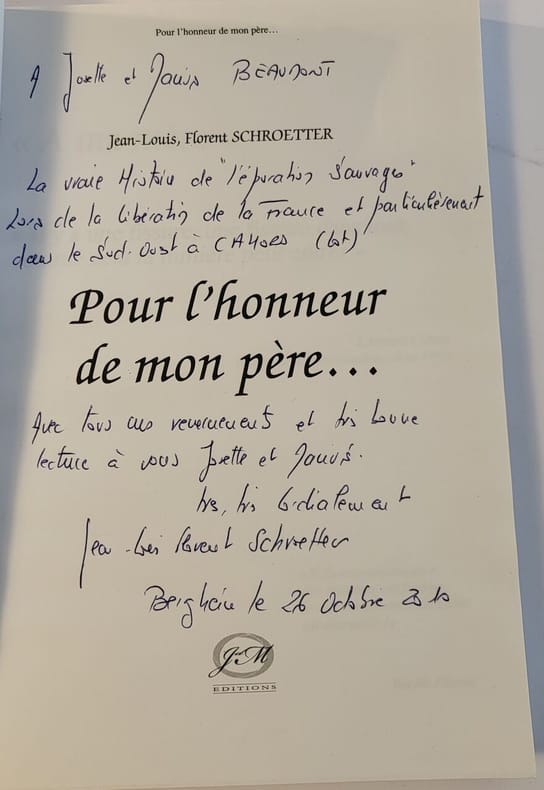 Pour l'honneur de mon père…
A Josette et BEAUMONT
Jean-Louis, Florent SCHROETTER
La vraie Histoire de "l'épuration sauvage"
Lors de la libération de la France et particulièrement
dans le Sud-Ouest à CAHORS (Lot)
Pour l'honneur
de mon père…
Avec tous mes remerciements et très bonne
lecture à vous Josette et
très, très Cordialement
Jean-Louis Florent Schroetter
Bergheim le 26 Octobre 2010
JM
EDITIONS